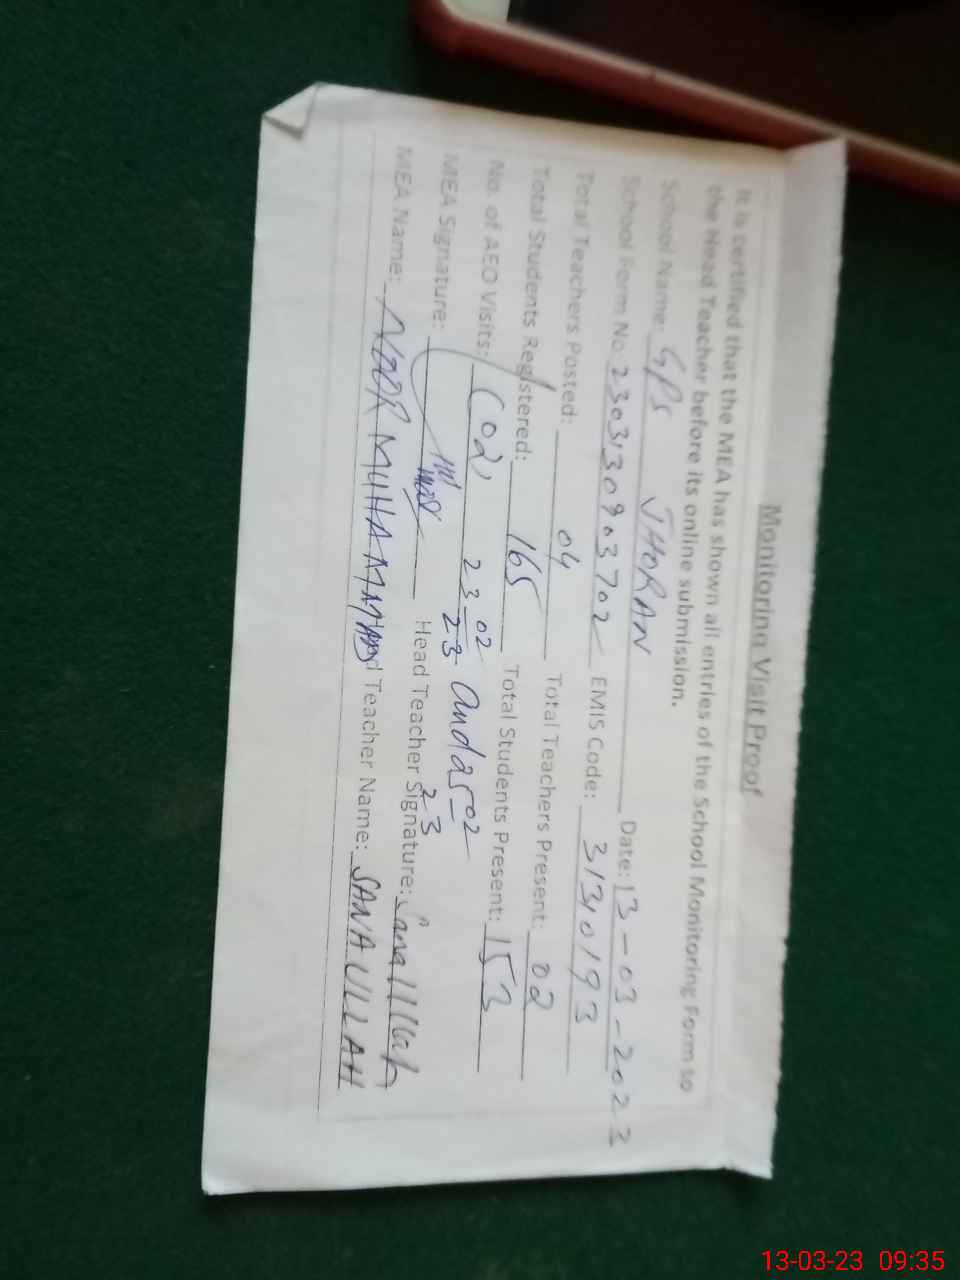 Monitoring Visit Proof
It is certified that the MEA has shown all entries of the School Monitoring Form to
the Head Teacher before its online submission.
School Name: GPS JHORAN Date: 13-03-2023
School Form No: 2303130903702 EMIS Code: 31340193
Total Teachers Posted: 04 Total Teachers Present: 02
Total Students Registered: 165 Total Students Present: 153
No. of AEO Visits: (02) 23 02 23 and 25 02 23
MEA Signature: Head Teacher Signature: Sanaullah
MEA Name: NOOR MUHAMMAD Teacher Name: SANAULLAH
13-03-23 09:35